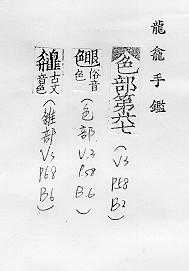 龍龕手鑑
色部第
(V3 P58 B2)
俗音色
(色部 V.2 P58 B.6)
古文音色
(雜部 V3 P68 B6)